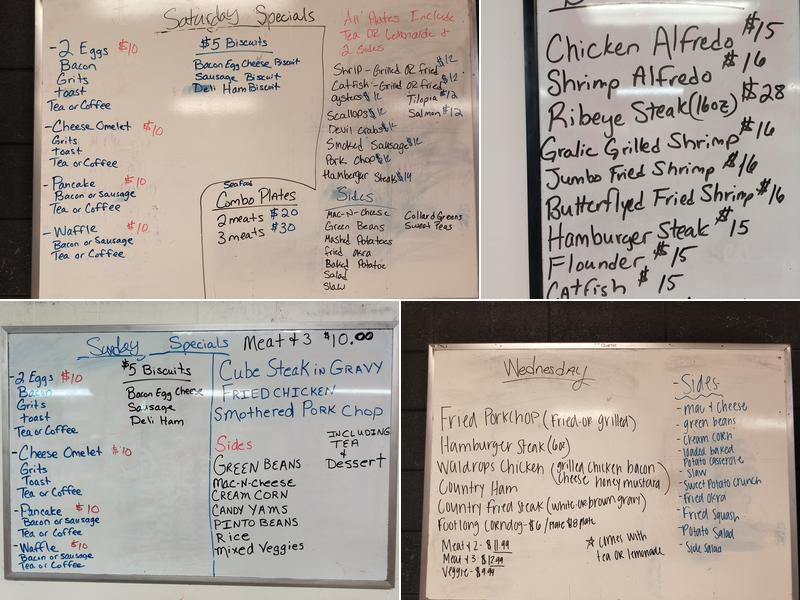 Saturday Specials
-2 Eggs $10
Bacon
Grits
toast
Tea or Coffee
-Cheese Omelet $10
Grits
toast
Tea or Coffee
-Pancake $10
Bacon or Sausage
Tea or Coffee
-Waffle $10
Bacon or Sausage
Tea or Coffee
$5 Biscuits
Bacon Egg Cheese Biscuit
Sausage Biscuit
Deli Ham Biscuit
Seafood
Combo Plates
2 meats $20
3 meats $30
All Plates Include
Tea OR Lemonade &
2 Sides
Shrip-Grilled OR fried $12
Catfish-Grilled OR fried $12
oysters $12 Tilapia $12
Scallops $12 Salmon $12
Devil crabs $12
Smoked Sausage $12
Pork Chop $12
Hamburger Steak $14
Sides
Mac-N-Cheese Collard Greens
Green Beans Sweet Peas
Mashd Potatoes
fried okra
Baked Potatoe
Salad
Slaw
Chicken Alfredo $15
Shrimp Alfredo $16
Ribeye Steak (16oz) $28
Gralic Grilled Shrimp $16
Jumbo Fried Shrimp $16
Butterflyed Fried Shrimp $16
Hamburger Steak $15
Flounder $15
Catfish $15
Sunday Specials Meat & 3 $10.00
-2 Eggs $10
Bacon
Grits
toast
Tea or Coffee
-Cheese Omelet $10
Grits
Toast
Tea or Coffee
-Pancake $10
Bacon or sausage
Tea or Coffee
-Waffle $10
Bacon or Sausage
Tea or Coffee
$5 Biscuits
Bacon Egg Cheese
Sausage
Deli Ham
Cube Steak in Gravy
Fried Chicken
Smothered Pork Chop
Sides
Green Beans
Mac-N-Cheese
Cream Corn
Candy Yams
Pinto Beans
Rice
Mixed Veggies
INCLUDING
TEA
&
Dessert
Wednesday
Fried Porkchop (Fried-or grilled)
Hamburger Steak (6oz)
Waldrops Chicken (grilled chicken bacon
cheese honey mustard)
Country Ham
Country Fried Steak (white-or brown gravy)
Footlong Corndog-$6 / Plate $8 Plate
Meat & 2- $11.99
Meat & 3- $12.99
Veggie- $9.99
☆ comes with
tea or lemonade
-Sides
- mac & cheese
- green beans
- cream corn
- loaded baked
Potato casserole
- slaw
- Sweet Potato Crunch
- Fried okra
- Fried Squash
- Potato Salad
- Side Salad